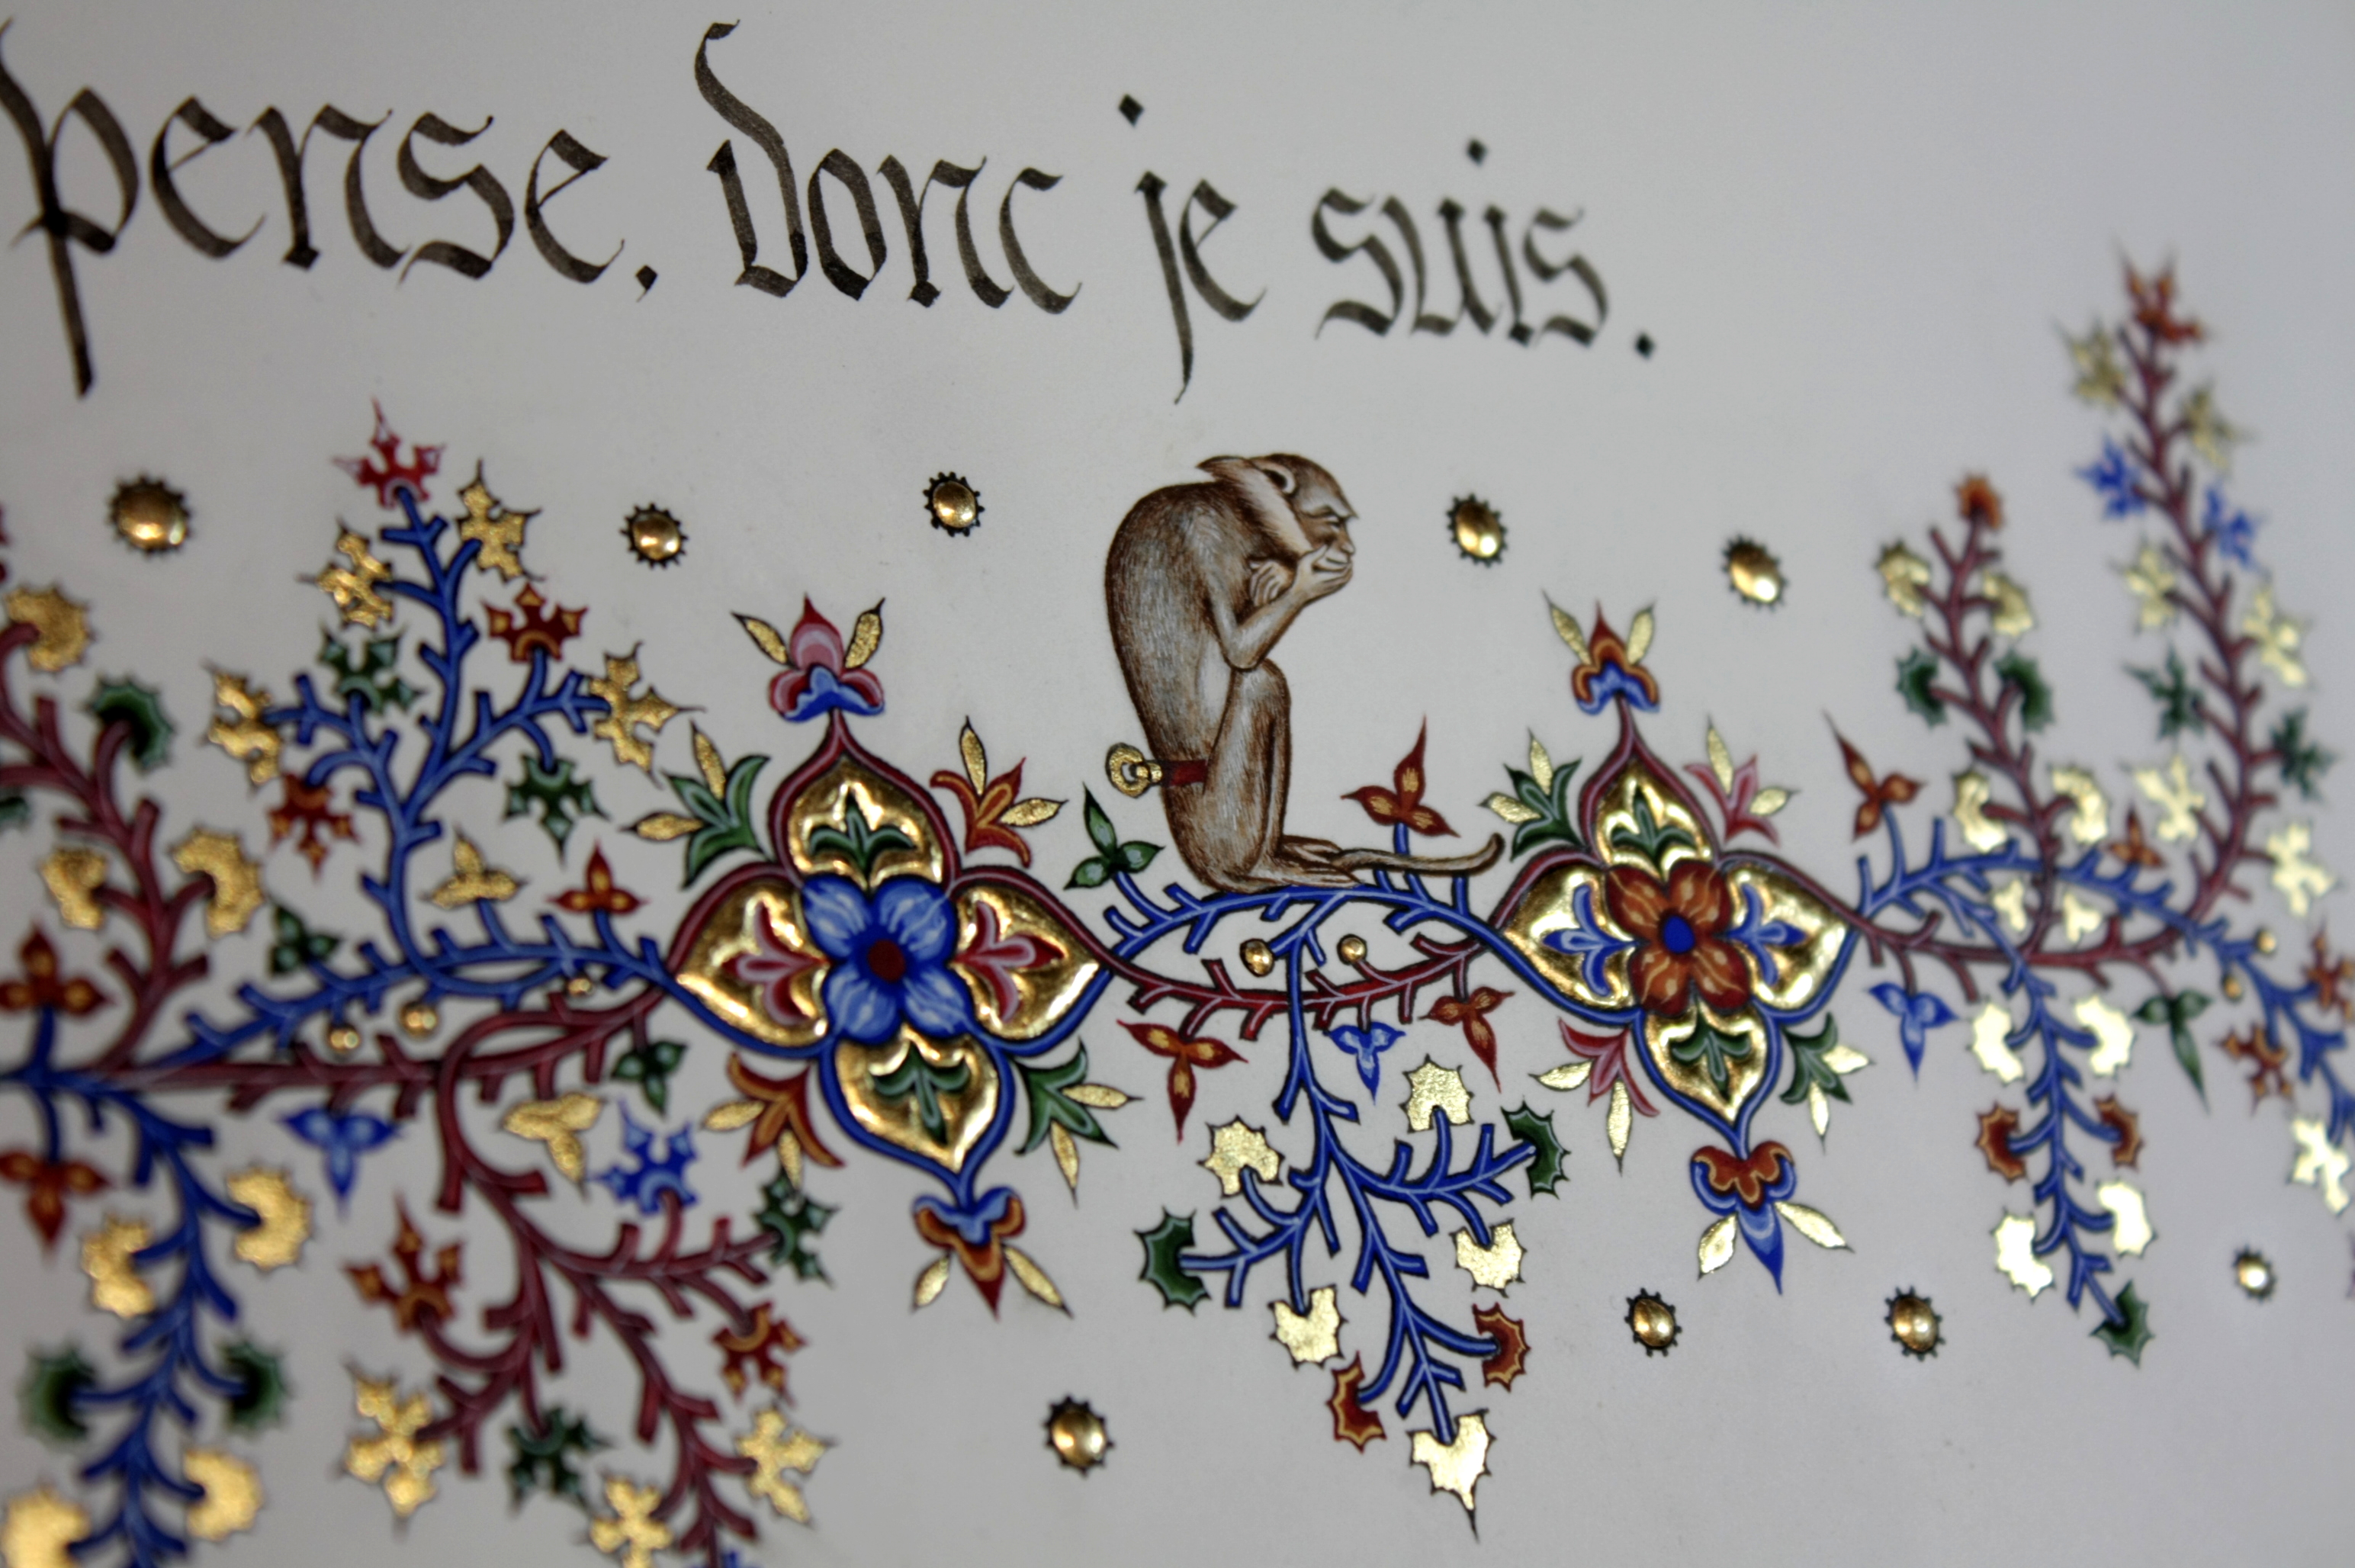 pense, donc je suis.